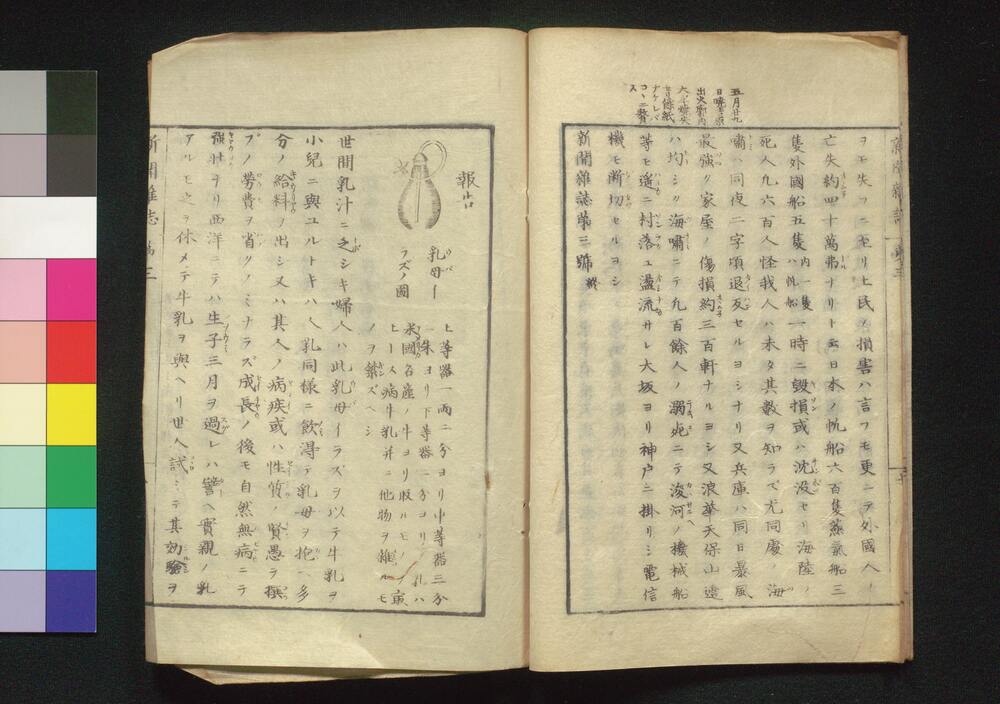 五月廿九
日暁吉原
出火廓内
大半燒失
ナケレバ
ス
ヲモ失フニ至リ土民ノ損害ハ言フモ更ニテ外國人ノ
亡失約四十萬弗ナリト云日本ノ帆船六百隻蒸氣船三
隻外國船五隻内一隻ハ帆船一時ニ毀損或ハ沈没セリ海陸ノ
死人九六百人怪我人ハ未タ其數ヲ知ラズ尤同處ノ海
嘯ハ同夜二字頃退死セルヨシナリ又兵庫ハ同日暴風
最強ク家屋ノ傷損約三百軒ナルヨシ又浪華天保山邊
ハ海嘯ニテ九百餘人ノ溺死ニテ浚河ノ機械船
等モ遥ニ村落ニ盪流サレ大坂ヨリ神戸ニ掛リシ電信
機モ断切セルヨシ
新聞雑誌第三號終
報告
乳母イ
ラズノ圖
上等器一兩二分ヨリ中等器三分
一朱ヨリ下等器二分
米國名産ノ牛ヨリ取ルモノ
ヒース病牛乳并ニ他物ヲ雑ルモ
ノヲ禁ズヘシ
世間乳汁ニ乏シキ婦人ハ此乳母イラズヲ以テ牛乳ヲ
小兒ニ與ユルトキハ人乳同様ニ飲淂テ乳母ヲ抱ヘ多
分ノ給料ヲ出シ又ハ其人ノ病疾或ハ性質ノ賢愚ヲ撰
ブノ勞費ヲ省クノミナラズ成長ノ後モ自然無病ニテ
強壮ナリ西洋ニテハ生子三月ヲ過レハ譬ヘ實親ノ乳
アルモ之ヲ休メテ牛乳ヲ與ヘリ世人試ミテ其効驗ヲ
新聞雑志 第三